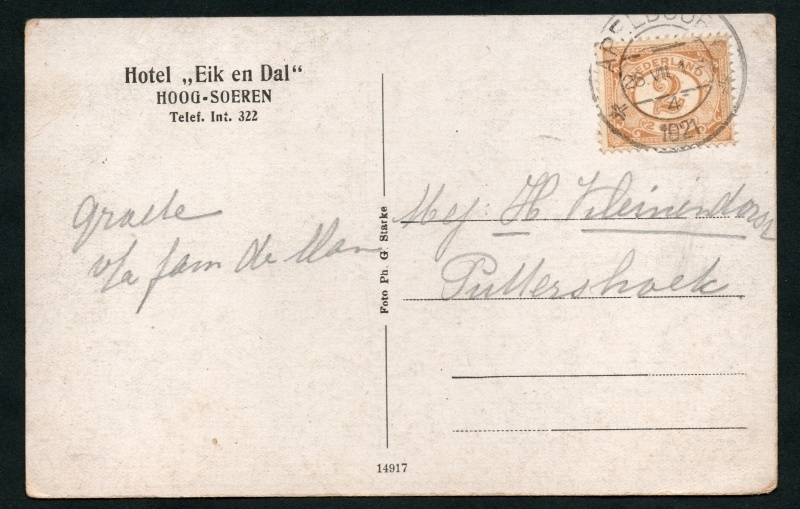 Hotel „Eik en Dal“
HOOG-SOEREN
Telef. Int. 322
Groete
v/a fam de Man
Foto Ph. G. Starke
14917
APELDOORN
NEDERLAND
2
28 VII
4
1921
Mej H Kleinendorst
Puttershoek